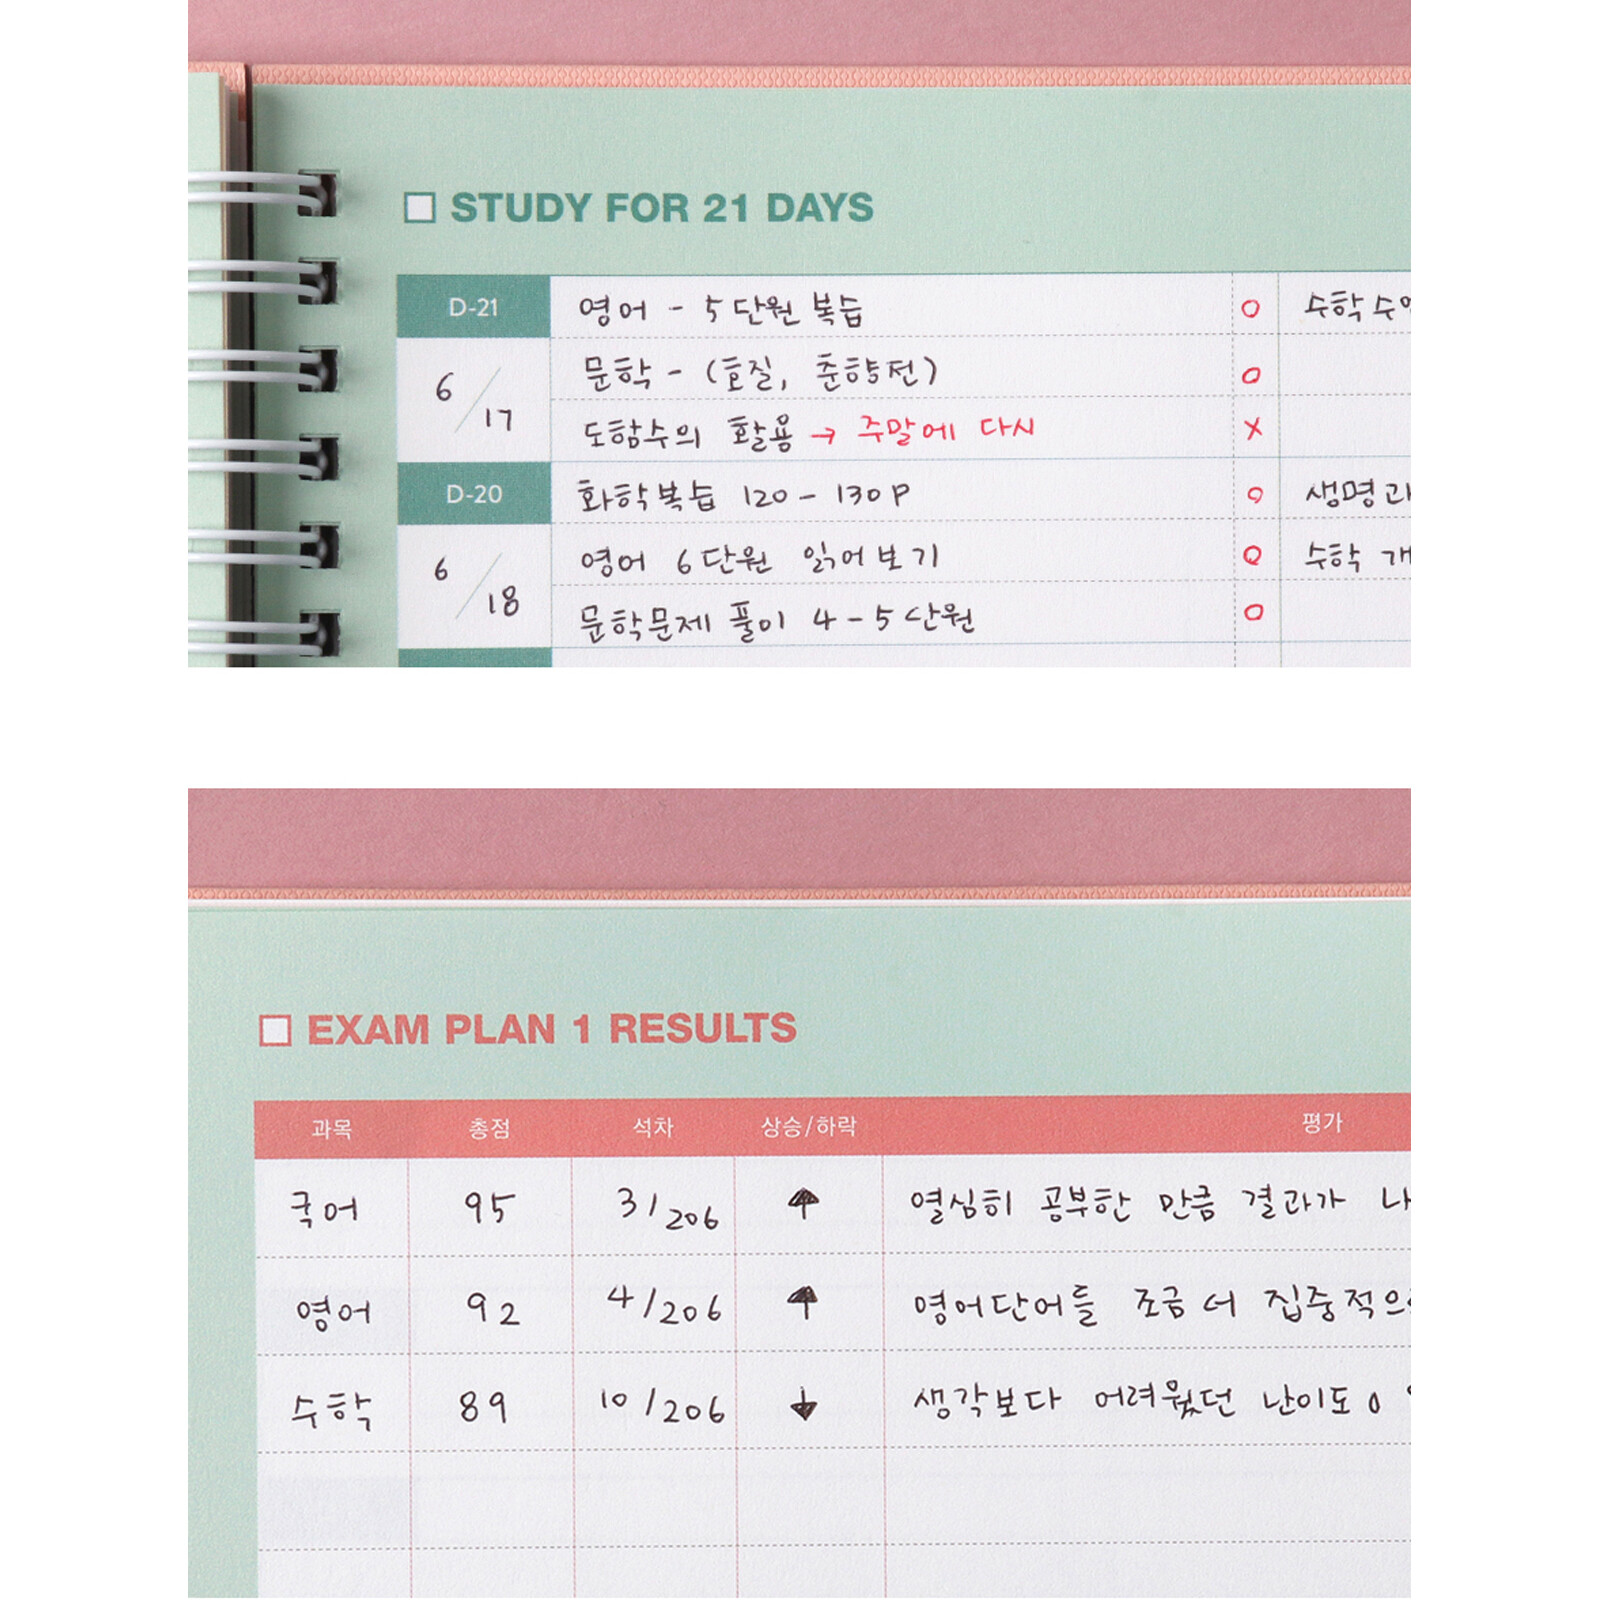 STUDY FOR 21 DAYS
D-21 영어 - 5단원 복습 O 수학 수
6/17 문학 - (호질, 춘향전) O
도함수의 활용 → 주말에 다시 X
D-20 화학복습 120 - 130P O 생명과
6/18 영어 6단원 읽어보기 O 수학 개
문학문제 풀이 4-5단원 O
EXAM PLAN 1 RESULTS
과목 총점 석차 상승/하락 평가
국어 95 3/206 ↑ 열심히 공부한 만큼 결과가 나
영어 92 4/206 ↑ 영어단어들 조금 더 집중적으
수학 89 10/206 ↓ 생각보다 어려웠던 난이도